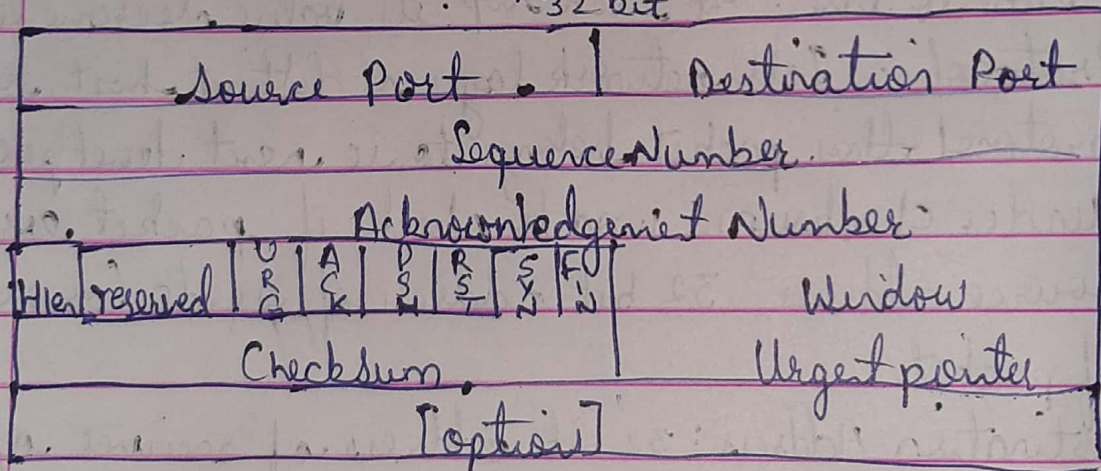 32 bit
Source Port Destination Port
Sequence Number
Acknowledgement Number
Hlen reserved URG ACK PSH RST SYN FIN Window
Checksum Urgent pointer
[option]